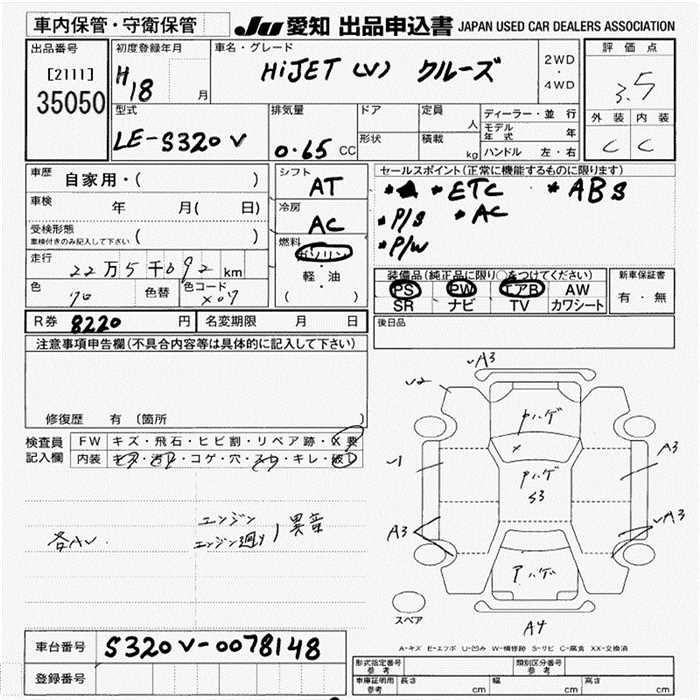 車内保管・守衛保管
JU 愛知 出品申込書 JAPAN USED CAR DEALERS ASSOCIATION
出品番号
[2111]
35050
初度登録年月
H18 月
車名・グレード
HiJET (V) クルーズ
2WD
4WD
評価点
3.5
外装 内装
C C
型式
LE-S320V
排気量
0.65 CC
ドア
形状
定員
人
積載
kg
ディーラー・並行
モデル年式 年
ハンドル 左・右
車歴 自家用・( )
車検 年 月( 日)
受検形態
車検付きのみ記入して下さい ( )
走行 22万5千692km
色 色替 色コード X07
シフト
AT
冷房
AC
燃料
ガソリン
軽・油
( )
セールスポイント(正常に機能するものに限ります)
* ETC * ABS
* P/S * AC
* P/W
装備品(純正品に限り○をつけてください)
PS PW エアB AW
SR ナビ TV カワシート
新車保証書
有・無
R券 8220 円 名変期限 月 日
後日品
注意事項申告欄(不具合内容等は具体的に記入して下さい)
修復歴 有 〔箇所 〕
検査員記入欄
FW キズ・飛石・ヒビ割・リペア跡・X要
内装 キズ・汚れ・コゲ・穴・スレ・キレ・破レ
各AU.
エンジン
エンジン廻り
異音
A3
U2
ヤハゲ
U1
ヤハゲ
S3
A3
A3
A3
ヤハゲ
A4
スペア
A-キズ E-エクボ U-凹み W-補修跡 S-サビ C-腐食 XX-交換済
車台番号 S320V-0078148
登録番号
形式指定番号
参考
類別区分番号
参考
車庫証明用
参考
長さ cm 幅 cm 高さ cm